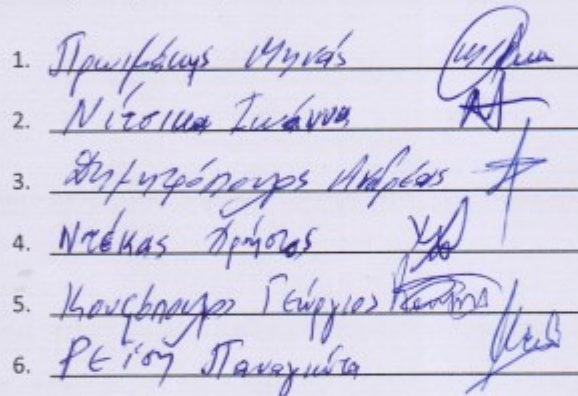 1. Πρωιμάκης Μηνάς
2. Νίτσικα Ιωάννα
3. Δημητρόπουλος Ανδρέας
4. Ντέκας Χρήστος
5. Γεώργιος
6. Ρείση Παναγιώτα